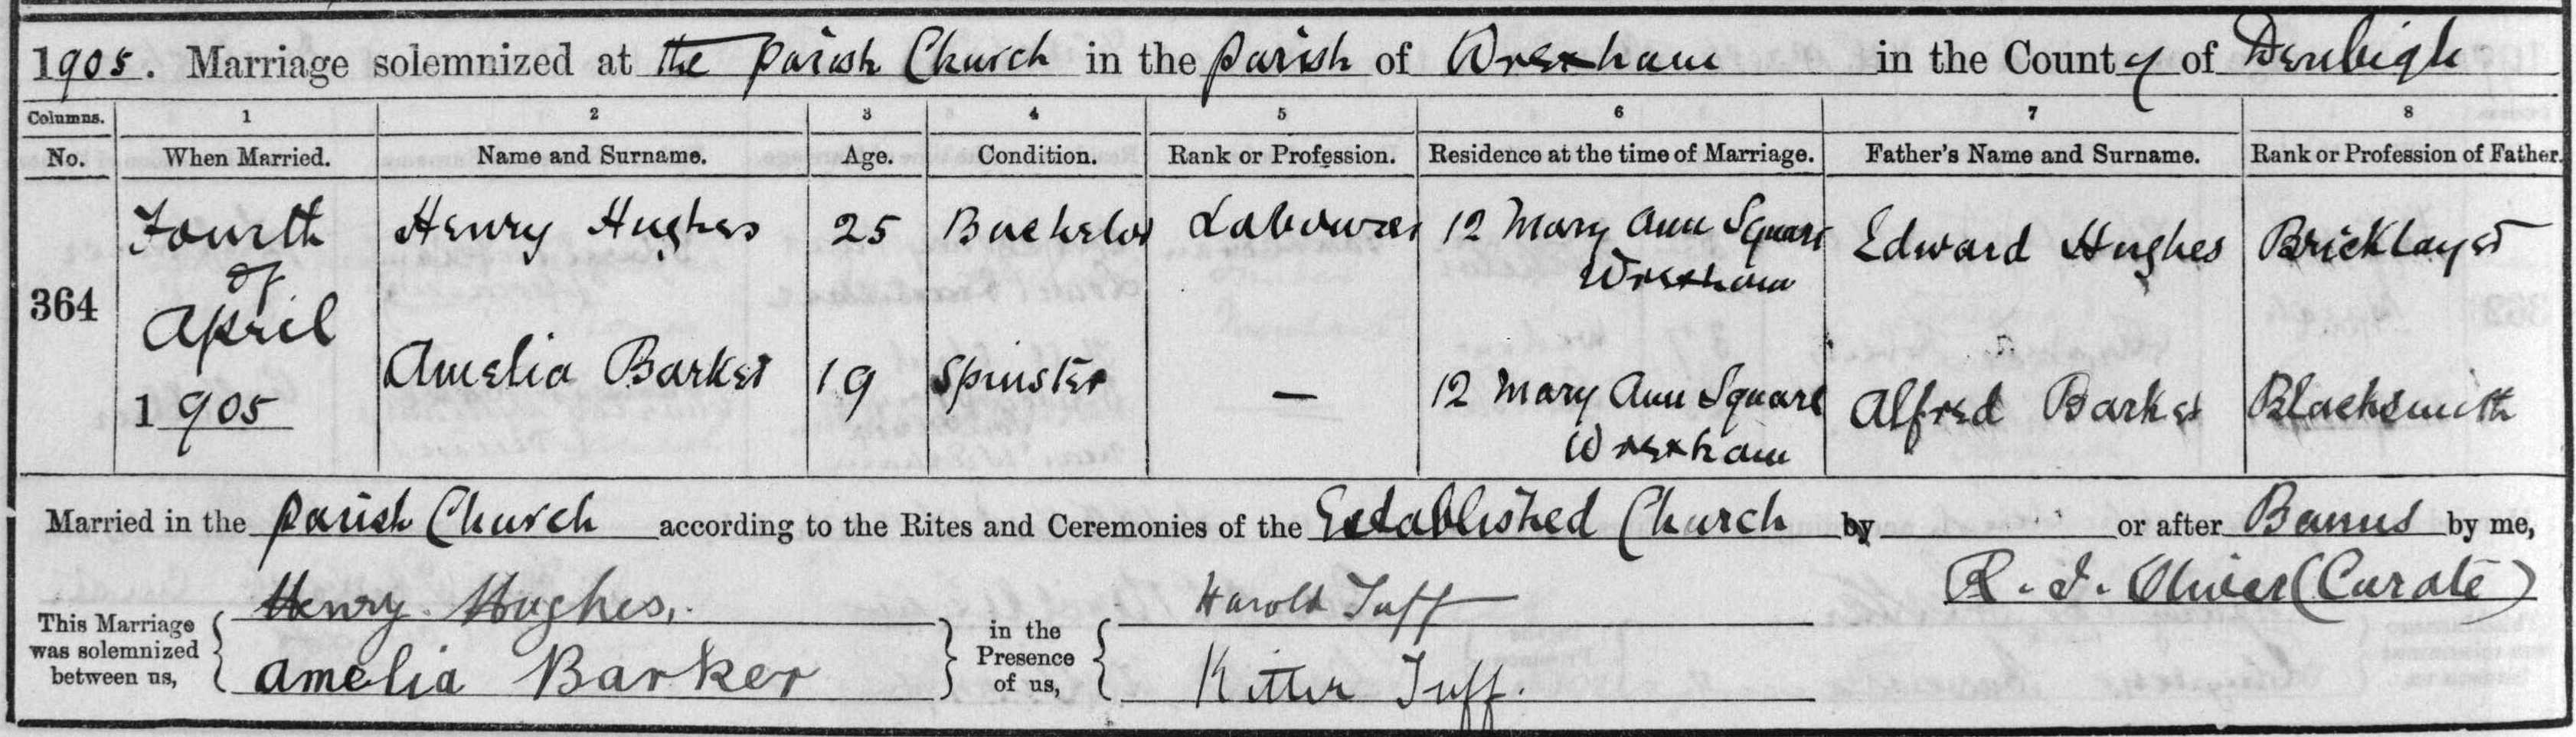 1905. Marriage solemnized at the Parish Church in the Parish of Wrexham in the County of Denbigh
Columns. 1 2 3 4 5 6 7 8
No. When Married. Name and Surname. Age. Condition. Rank or Profession. Residence at the time of Marriage. Father's Name and Surname. Rank or Profession of Father.
364
Fourth
of
April
1905
Henry Hughes 25 Bachelor Labourer 12 Mary Ann Square
Wrexham
Edward Hughes Bricklayer
Amelia Barker 19 Spinster — 12 Mary Ann Square
Wrexham
Alfred Barker Blacksmith
Married in the Parish Church according to the Rites and Ceremonies of the Established Church by or after Banns by me,
R. J. Oliver (Curate)
This Marriage
was solemnized
between us,
Henry Hughes,
Amelia Barker
in the
Presence
of us,
Harold Tuff
Tuff.